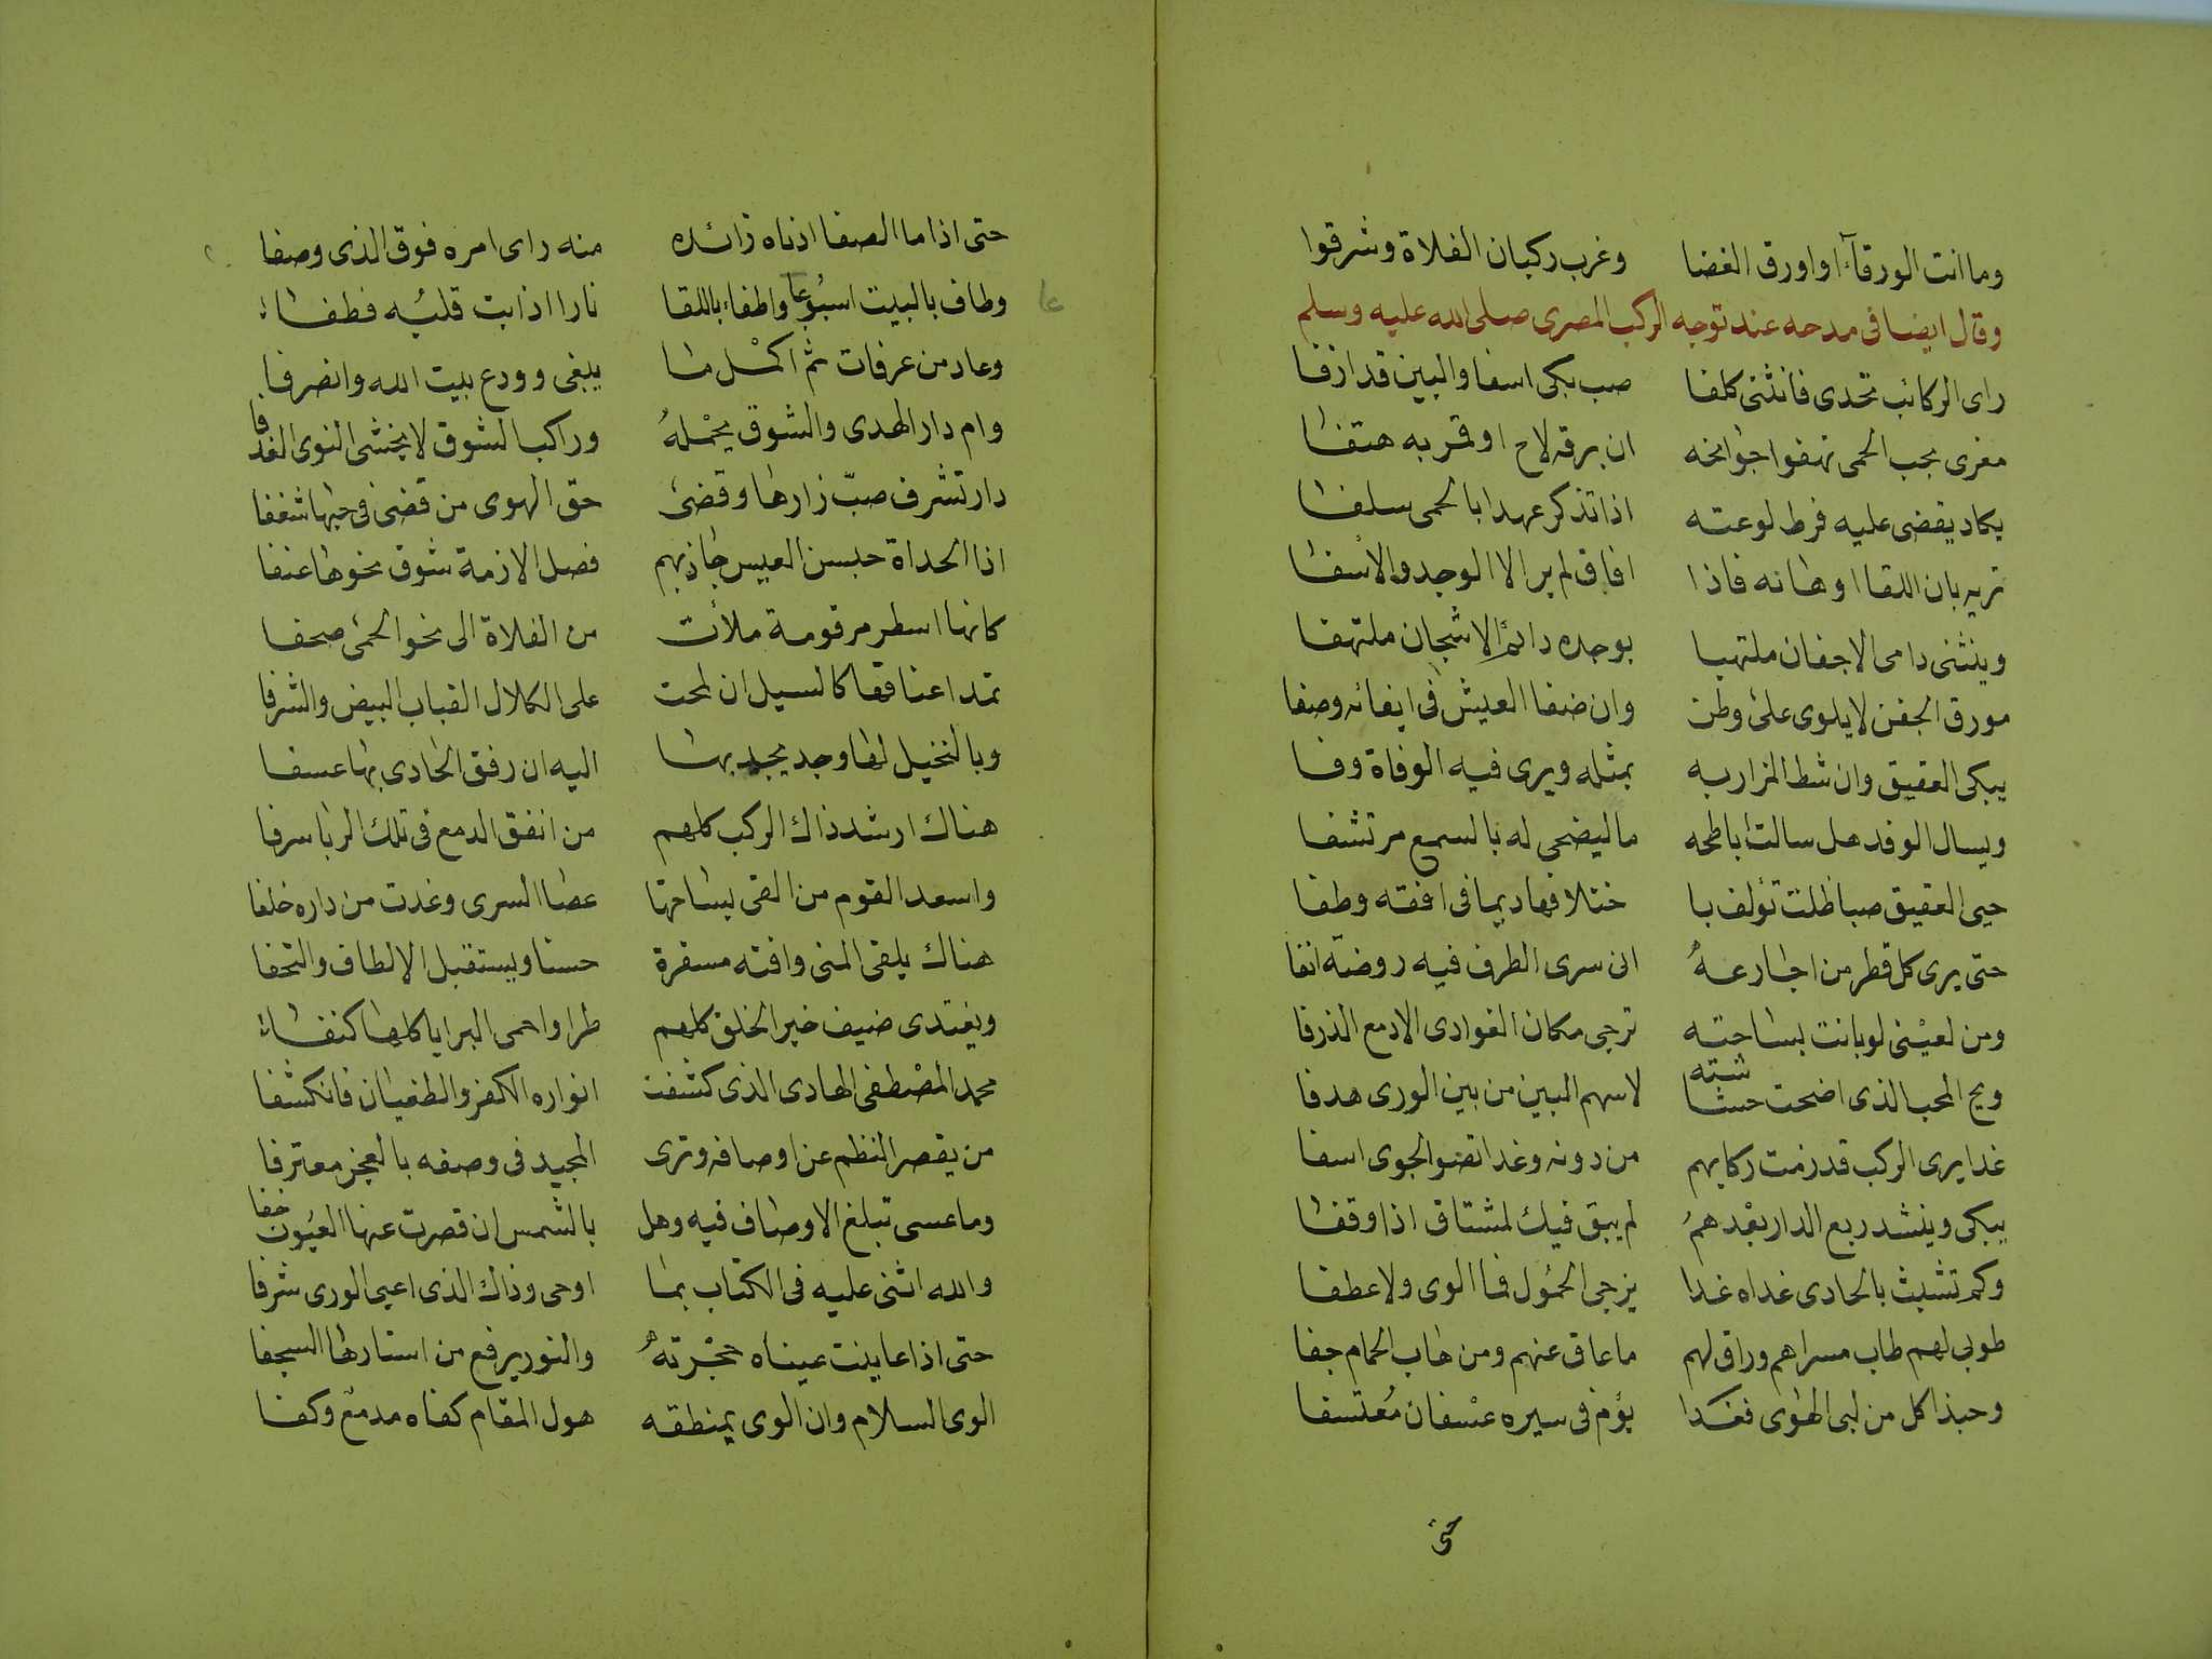 وما انت الورقآء او اورق الغضا وغرب ركبان الفلاة وشرقوا
وقال ايضا فى مدحه عند توجه الركب المصرى صلى الله عليه وسلم
راى الركائب تحدى فانثنى كلفا صب بكى اسفا والبين قد ازفا
مغرى بحب الحمى تهفوا جوانحه ان برقه لاح او قمر به هتفا
يكاد يقضى عليه فرط لوعته اذا تذكر عهدا بالحمى سلفا
تريه بان اللقا اوطانه فاذا افاق لم ير الا الوجد والاسفا
وينثنى دامى الاجفان ملتهبا بوجده دائم الاشجان ملتهفا
مورق الجفن لا يلوى على وطن وان ضفا العيش فى ايفائه وصفا
يبكى العقيق وان شط المزار به بمثله ويرى فيه الوفاة وفا
ويسال الوفد هل سالت اباطحه ما ليضحى له بالسمع مرتشفا
حيى العقيق صبا ظلت تؤلف با ختلافها ديما فى افقه وطفا
حتى يرى كل قطر من اجارعهُ انى سرى الطرف فيه روضة انفا
ومن لعيْنى لو بانت بساحته ترجى مكان الغوادى الادمع الذرفا
ويح المحب الذى اضحت حشاشته لاسهم البين من بين الورى هدفا
غدا يرى الركب قد زمت ركابهم من دونه وغدا نضو الجوى اسفا
يبكى وينشد ربع الدار بعْدهمُ لم يبق فيك لمشتاق اذا وقفا
وكم تشبث بالحادى غداه غدا يزجى الحمُول فما الوى ولا عطفا
طوبى لهم طاب مسراهم وراق لهم ما عاق عنهم ومن هاب الحمام جفا
وحبذا كل من لبى الهوى فغدا يؤم فى سيره عسْفان مُعتسفا
حتى
حتى اذا ما الصفا ادناه زائده منه راى امره فوق الذى وصفا
وطاف بالبيت اسبُوعا واطفاء باللقا نارا اذابت قلبُه فطفاء
عا
وعاد من عرفات ثم اكمْل ما يبغى وودع بيت الله وانصرفا
وام دار الهدى والشوق يحْملهُ وراكب الشوق لا يخشى النوى القذفا
دار تشرف صبّ زارها وقضى حق الهوى من قضى فى حبها شغفا
اذا الحداة حبسن العيس جاذبهم فصل الازمة شوق نحوها عنفا
كانها اسطر مرقومة ملأت من الفلاة الى نحو الحمى صحفا
تمد اعناقها كالسيل ان لمحت على الكلال القباب البيض والشرفا
وبالنخيل لها وجد يجد بها اليه ان رفق الحادى بها عسفا
هناك ارشد ذاك الركب كلهم من انفق الدمع فى تلك الربا سرفا
واسعد القوم من القى بساحتها عصا السرى وغدت من داره خلفا
هناك يلقى المنى وافته مسفرة حسنا ويستقبل الالطاف والتحفا
ويغتدى ضيف خير الخلق كلهم طرا واحمى البرايا كلها كنفاء
محمد المصْطفى الهادى الذى كشفت انواره الكفر والطغيان فانكشفا
من يقصر النظم عن اوصافه وترى المجيد فى وصفه بالعجز معترفا
وما عسى تبلغ الاوصاف فيه وهل بالشمس ان قصرت عنها العيُون خفا
والله اثنى عليه فى الكتاب بما اوحى وذاك الذى اعيى الورى شرفا
حتى اذا عاينت عيناه حجْرتهُ والنور يرفع من استارها السجفا
الوى السلام وان الوى بمنطقه هول المقام كفاه مدمع وكفا